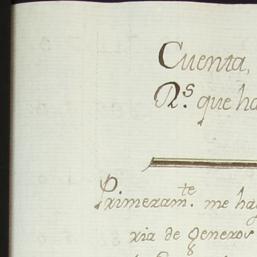 Cuenta,
R.s que ha
Primeram.te me ha
xia de generos